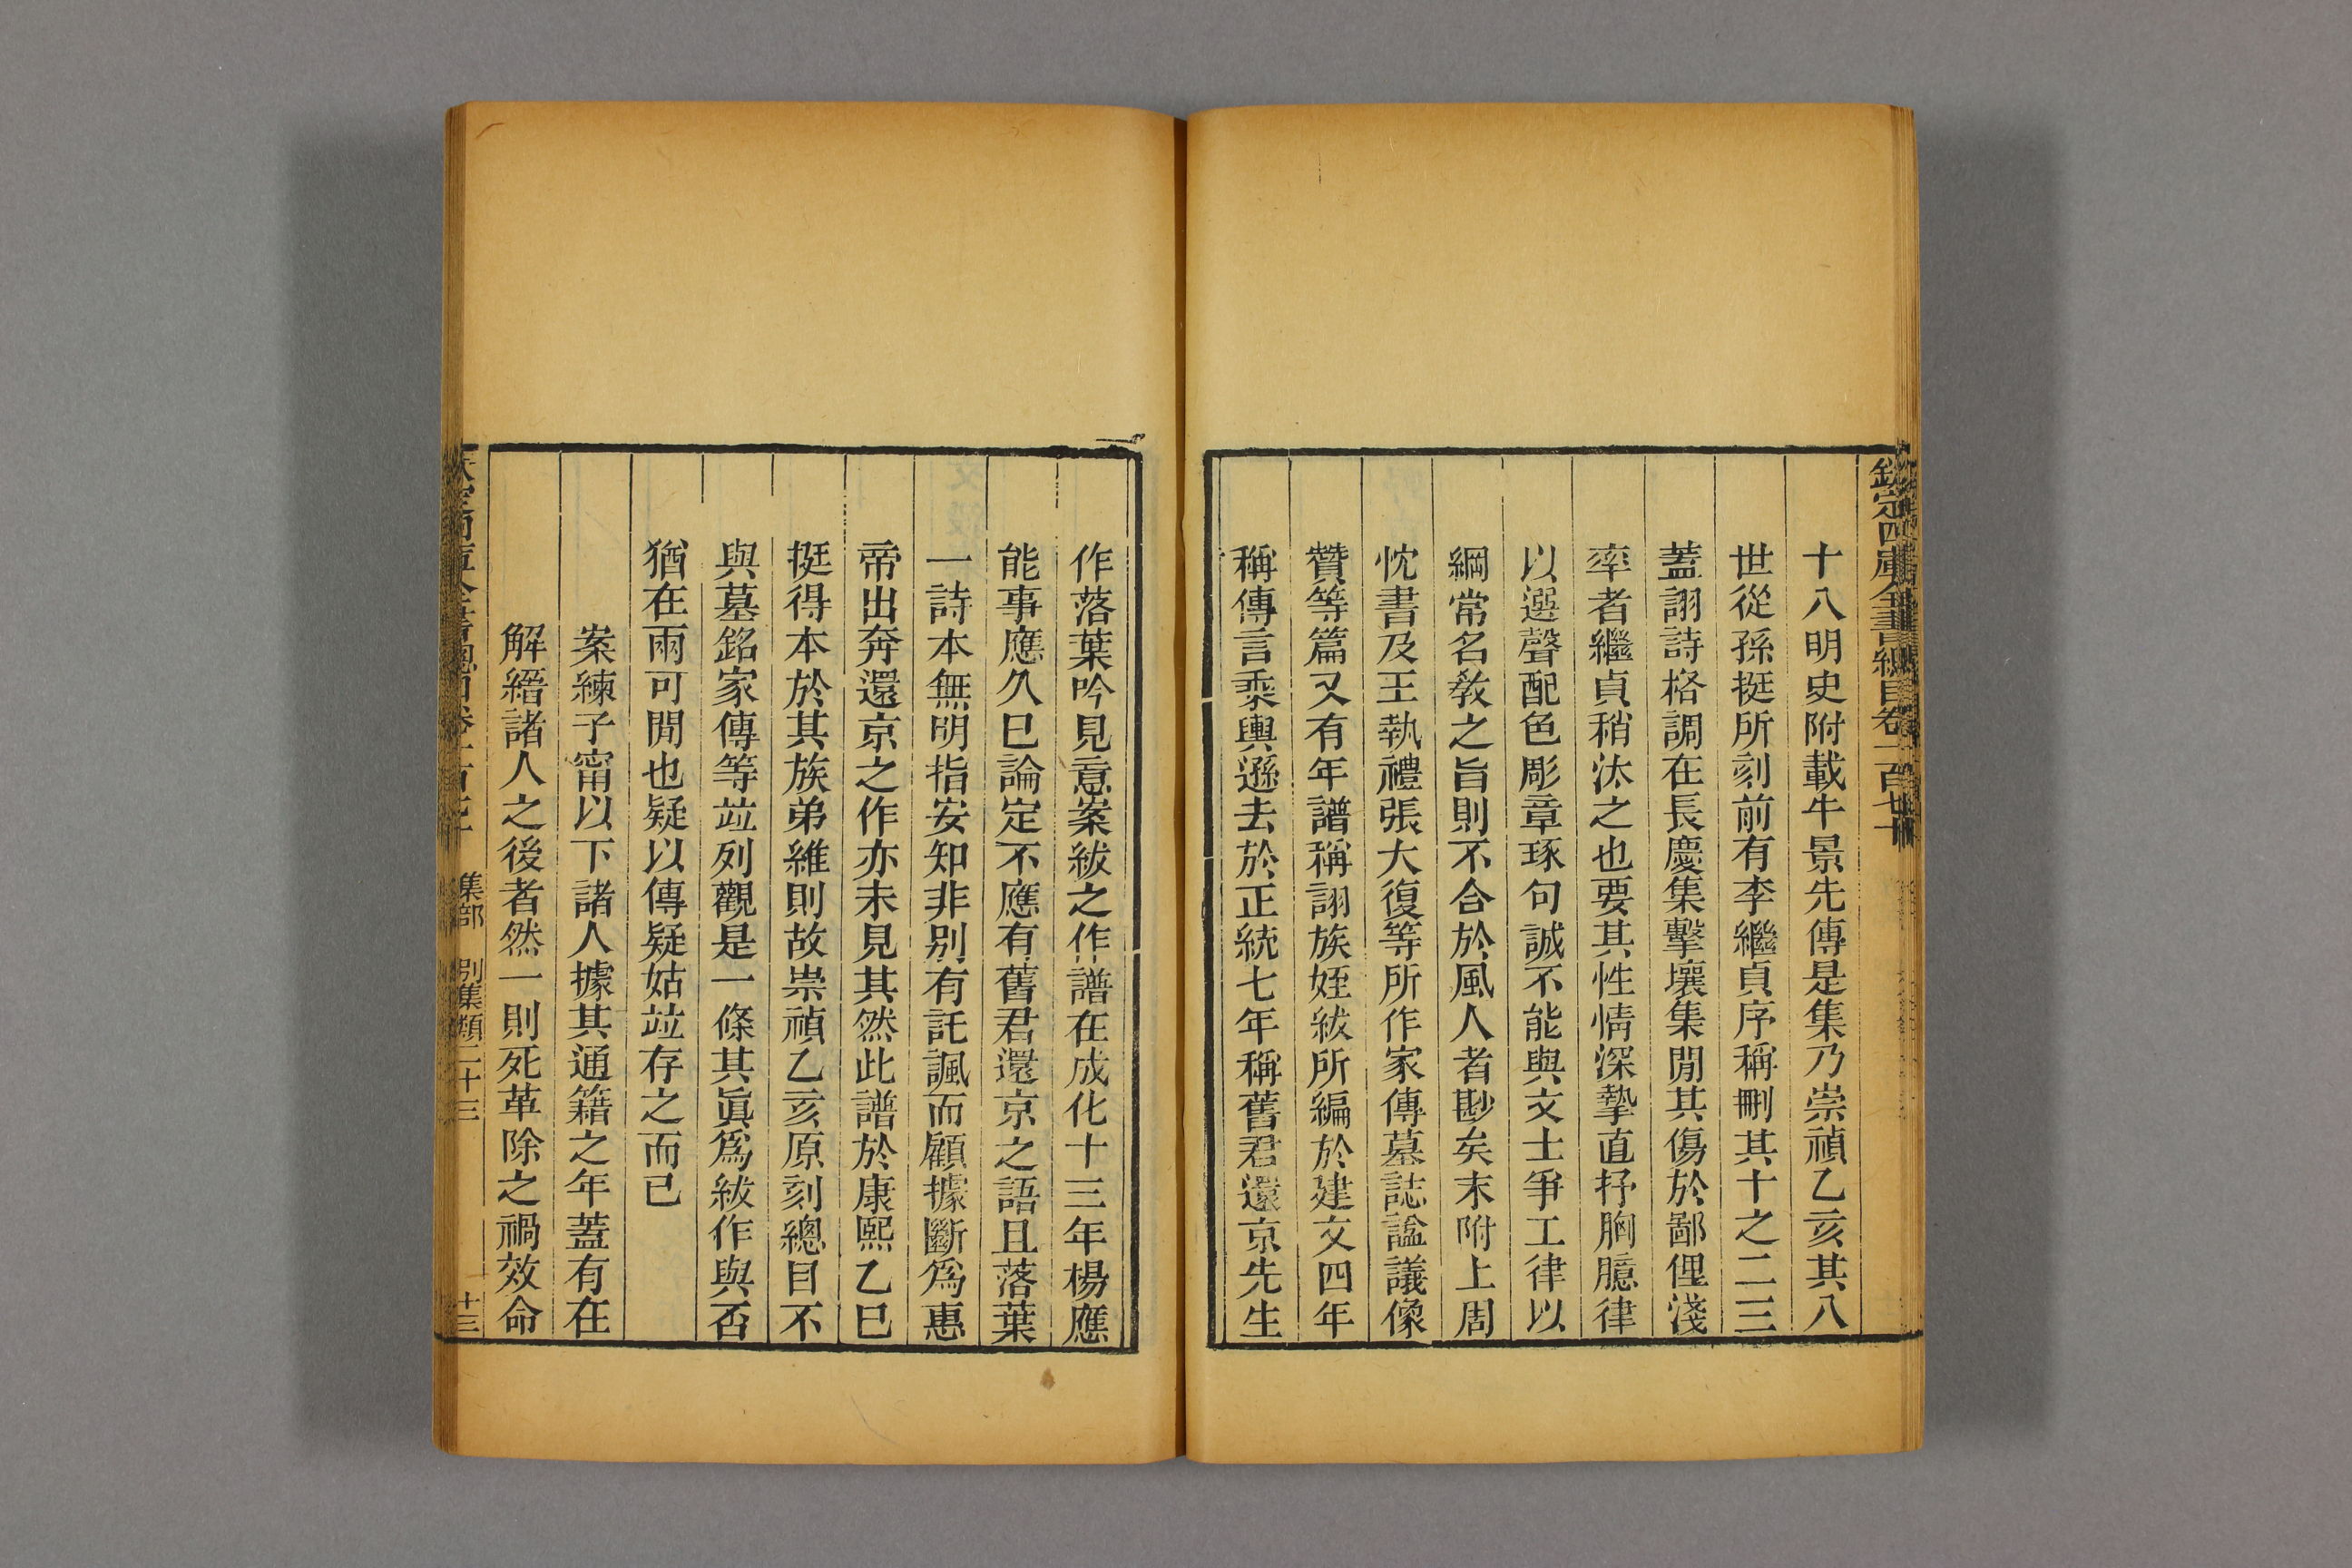 欽定四庫全書總目卷一百七十
十八明史附載牛景先傳是集乃崇禎乙亥其八
世從孫挺所刻前有李繼貞序稱刪其十之二三
蓋詡詩格調在長慶集擊壤集閒其傷於鄙俚淺
率者繼貞稍汰之也要其性情深摯直抒胸臆律
以選聲配色彫章琢句誠不能與文士爭工律以
綱常名教之旨則不合於風人者尠矣末附上周
忱書及王執禮張大復等所作家傳墓誌謚議像
贊等篇又有年譜稱詡族姪紱所編於建文四年
稱傳言乘輿遜去於正統七年稱舊君還京先生
作落葉吟見意案紱之作譜在成化十三年楊應
能事應久已論定不應有舊君還京之語且落葉
一詩本無明指安知非別有託諷而顧據斷為惠
帝出奔還京之作亦未見其然此譜於康熙乙巳
挺得本於其族弟維則故崇禎乙亥原刻總目不
與墓銘家傳等竝列觀是一條其眞爲紱作與否
猶在兩可閒也疑以傳疑姑竝存之而已
案練子甯以下諸人據其通籍之年蓋有在
解縉諸人之後者然一則死革除之禍效命
集部 別集類二十三 十三